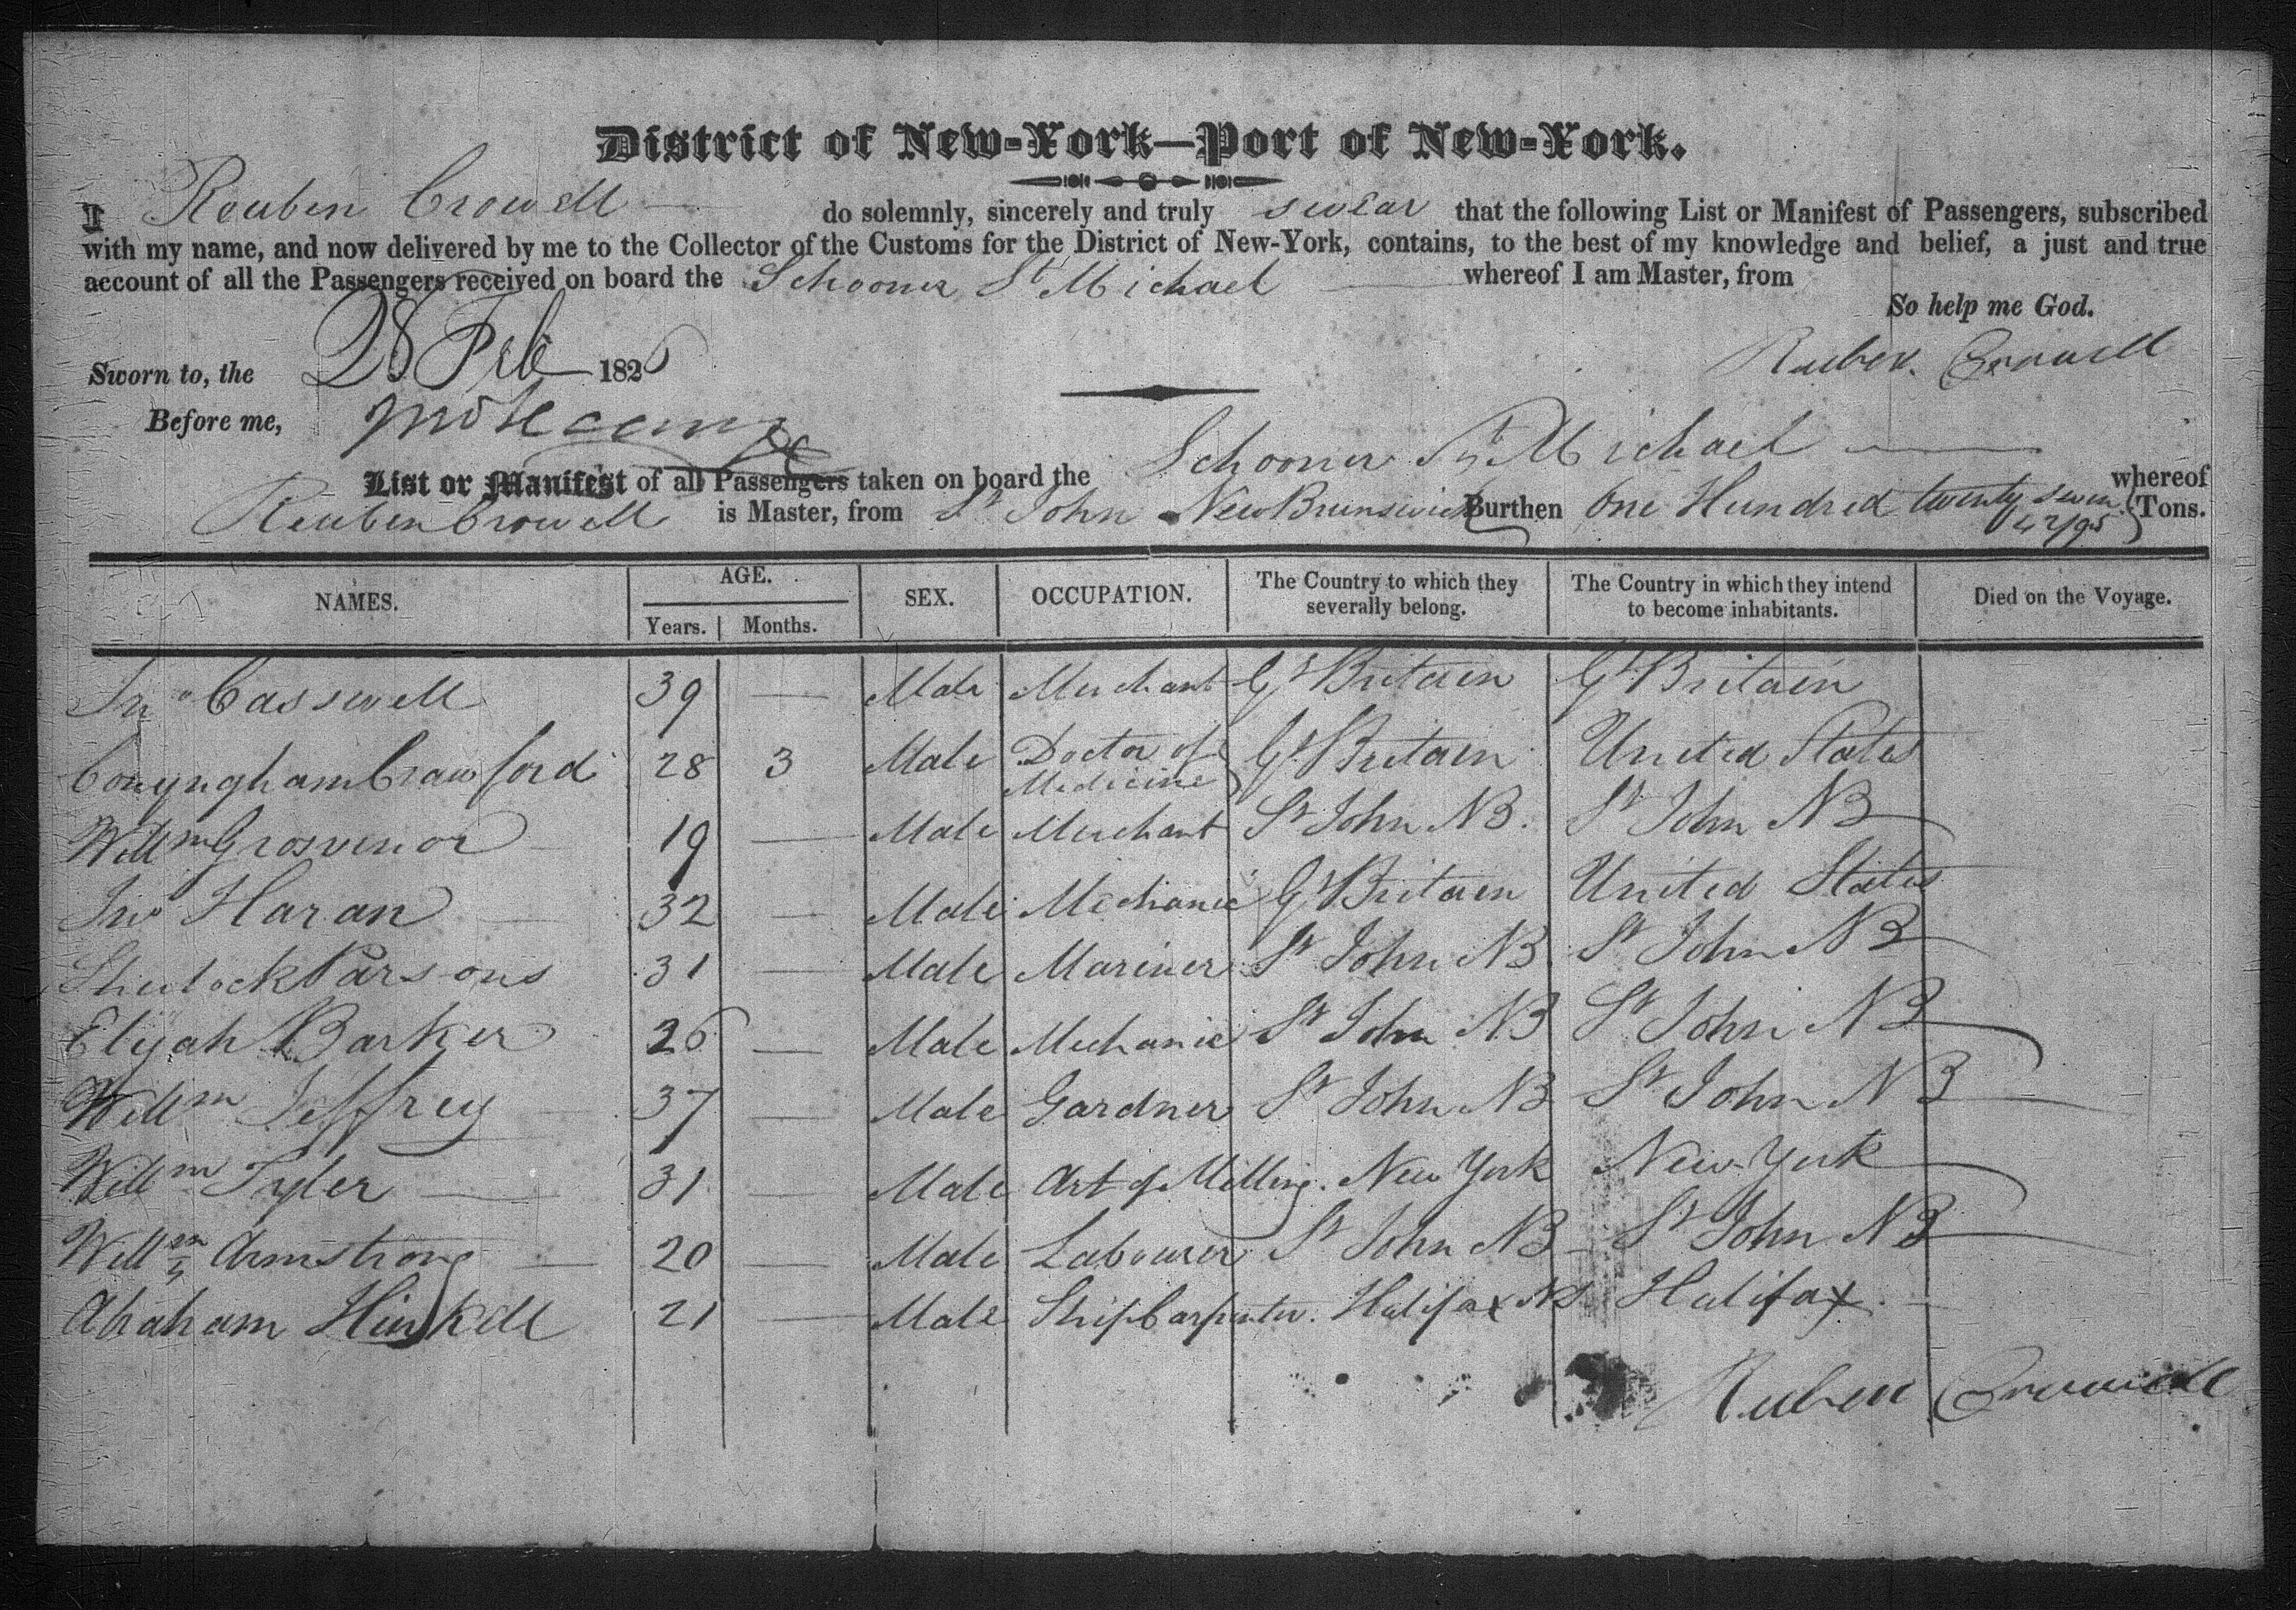 District of New-York—Port of New-York.
I Reuben Crowell do solemnly, sincerely and truly swear that the following List or Manifest of Passengers, subscribed
with my name, and now delivered by me to the Collector of the Customs for the District of New-York, contains, to the best of my knowledge and belief, a just and true
account of all the Passengers received on board the Schooner St Michael whereof I am Master, from
So help me God.
Sworn to, the 28 Feb 1826
Reuben Crowell
Before me,
List or Manifest of all Passengers taken on board the Schooner St Michael whereof
Reuben Crowell is Master, from St John New Brunswick Burthen One Hundred twenty seven 42/95 Tons.
NAMES. AGE. SEX. OCCUPATION. The Country to which they severally belong. The Country in which they intend to become inhabitants. Died on the Voyage.
Years. Months.
Jno Casswell 39 — Male Merchant Gt Britain Gt Britain
Conyngham Crawford 28 3 Male Doctor of Medicine Gt Britain United States
Willm Grosvenor 19 — Male Merchant St John NB. St John NB
Jno Haran 32 — Male Mechanic Gt Britain United States
Parsons 31 — Male Mariner St John NB. St John NB
Elijah Barker 26 — Male Mechanic St John NB St John NB
Willm Jeffrey 37 — Male Gardner St John NB St John NB
Willm Tyler 31 — Male Art of Milling. New York New York
Willm Armstrong 20 — Male Labourer St John NB St John NB
Abraham 21 — Male Ship Carpenter. Halifax NS Halifax.
Reuben Crowell